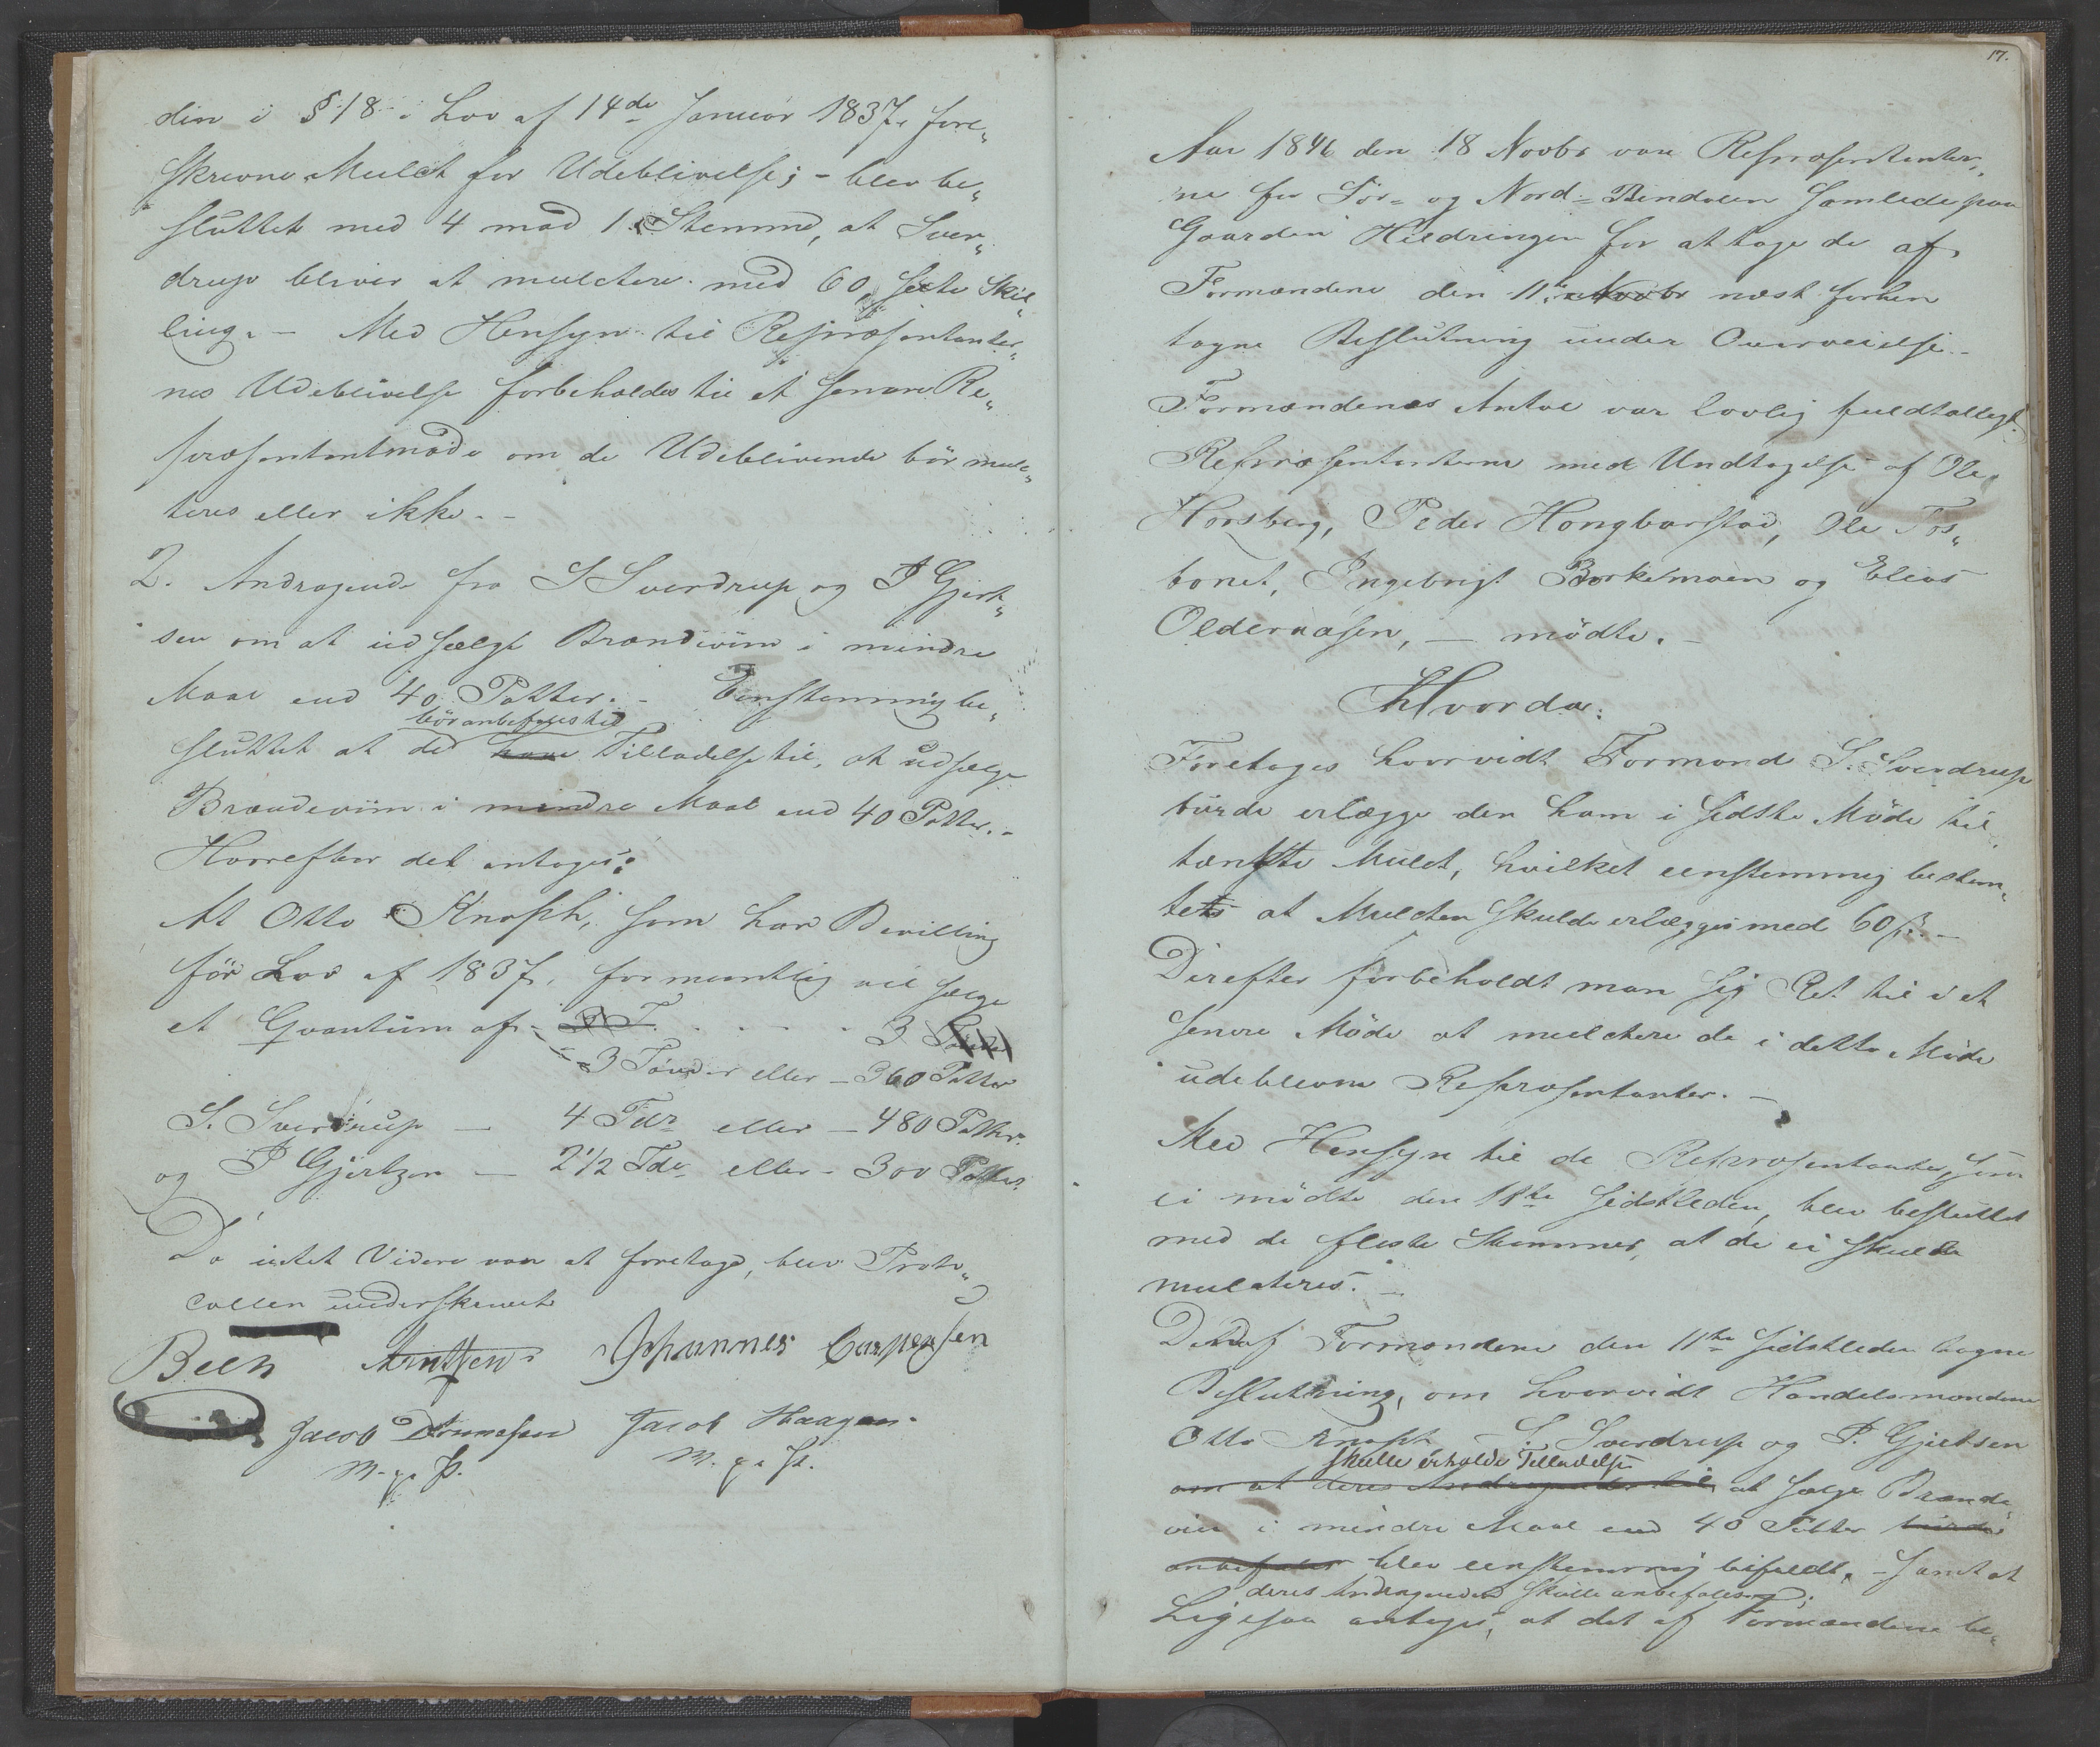 den i § 18 i Lov af 14de Januar 1837 fore„
skrevne Mulct for Udeblivelse; - blev be„
sluttet med 4 mod 1 Stemme, at Sver„
drup bliver at mulctere med 60 sexti Skil„
ling. — Med Hensyn til Repræsentanter„
nes Udeblivelse forbeholdes til et senere Re„
præsentantmøde om de Udeblivende bør mulc„
teres eller ikke. -
2. Andragende fra S Sverdrup og P Gjert„
sen om at udsælge Brændeviin i mindre
Maal end 40 Potter. - Eenstemmig be„
bør anbefales ted
sluttet at de have Tilladelse til, at udsælge
Brændeviin i mindre Maal end 40 Potter. -
Hvorefter det antoges:
At Otto Knoph, som har Bevilling
før Lov af 1837, formeentlig vil sælge
et Qvantum af - 3 T. - - - 3
3 Tønder eller - 360 Potter
S. Sverdrup — 4 Tdr eller - 480 Potter.
og P Gjertzen — 2 1/2 Tdr eller - 300 Potter.
Da intet Videre var at foretage, blev Proto„
collen underskrevet
Bech Arntzen Johannes Caspersen
Jacob Arnnesen Jacob Haagens.
M. p. P. M. p. P.
17.
Aar 1846 den 18 Novbr var Repræsentanter„
ne for Sør- og Nord-Bindalen samlede paa
Gaarden Hildringen for at tage de af
Formændene den 11te Novbr næst forhen
tagne Beslutning under Overveielse. -
Formændenes Antal var lovlig fuldtalligt.
Repræsentanterne med Undtagelse af Ole
Horsberg, Peder Hongbarstad, Ole Tos„
bonet, Engebrigt Borkelmoen og Elias
Oldernæsen, — mødte. -
Hvorda:
Foretoges hvorvidt Formand S. Sverdrup
burde erlægge den ham i sidste Møde til„
tænkte Mulct, hvilket eenstemmig bestem„
tes at Mulcten skulde erlægges med 60 ß. -
Derefter forbeholdt man sig Ret til i et
senere Møde at mulctere de i dette Møde
udeblevne Repræsentanter. -
Med Hensyn til de Repræsentanter, som
ei mødte den 11te sidstleden, blev besluttet
med de fleste Stemmer, at de ei skulde
mulcteres. -
Det af Formændene den 11te sidstleden tagne
Beslutning, om hvorvidt Handelsmændene
Otto Knoph, S. Sverdrup og P. Gjertsen
skulle erholde Tilladelse
om at deres Andragende til at sælge Brænde
viin i mindre Maal end 40 Potter burde
anbefales blev eenstemmig bifaldt, - samt at
deres Andragender skulle anbefales;
Ligesaa antoges, at det af Formændene be„